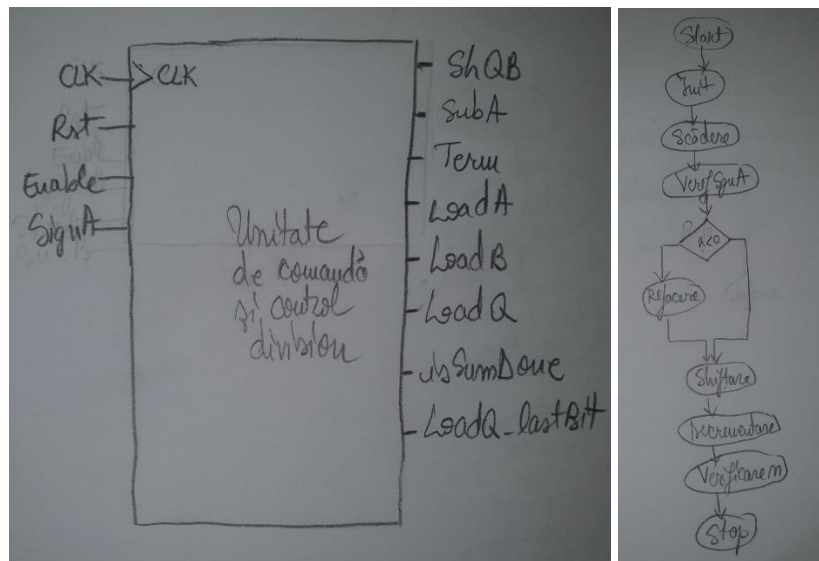 CLK
CLK
Rst
Enable
SignA
Unitate
de comandă
și control
division
ShQB
SubA
Term
LoadA
LoadB
LoadQ
isSumDone
LoadQ_lastBit
Start
Init
Scădere
Verif SgnA
a<0
Refacere
Shiftare
Decrementare
Verificare n
Stop